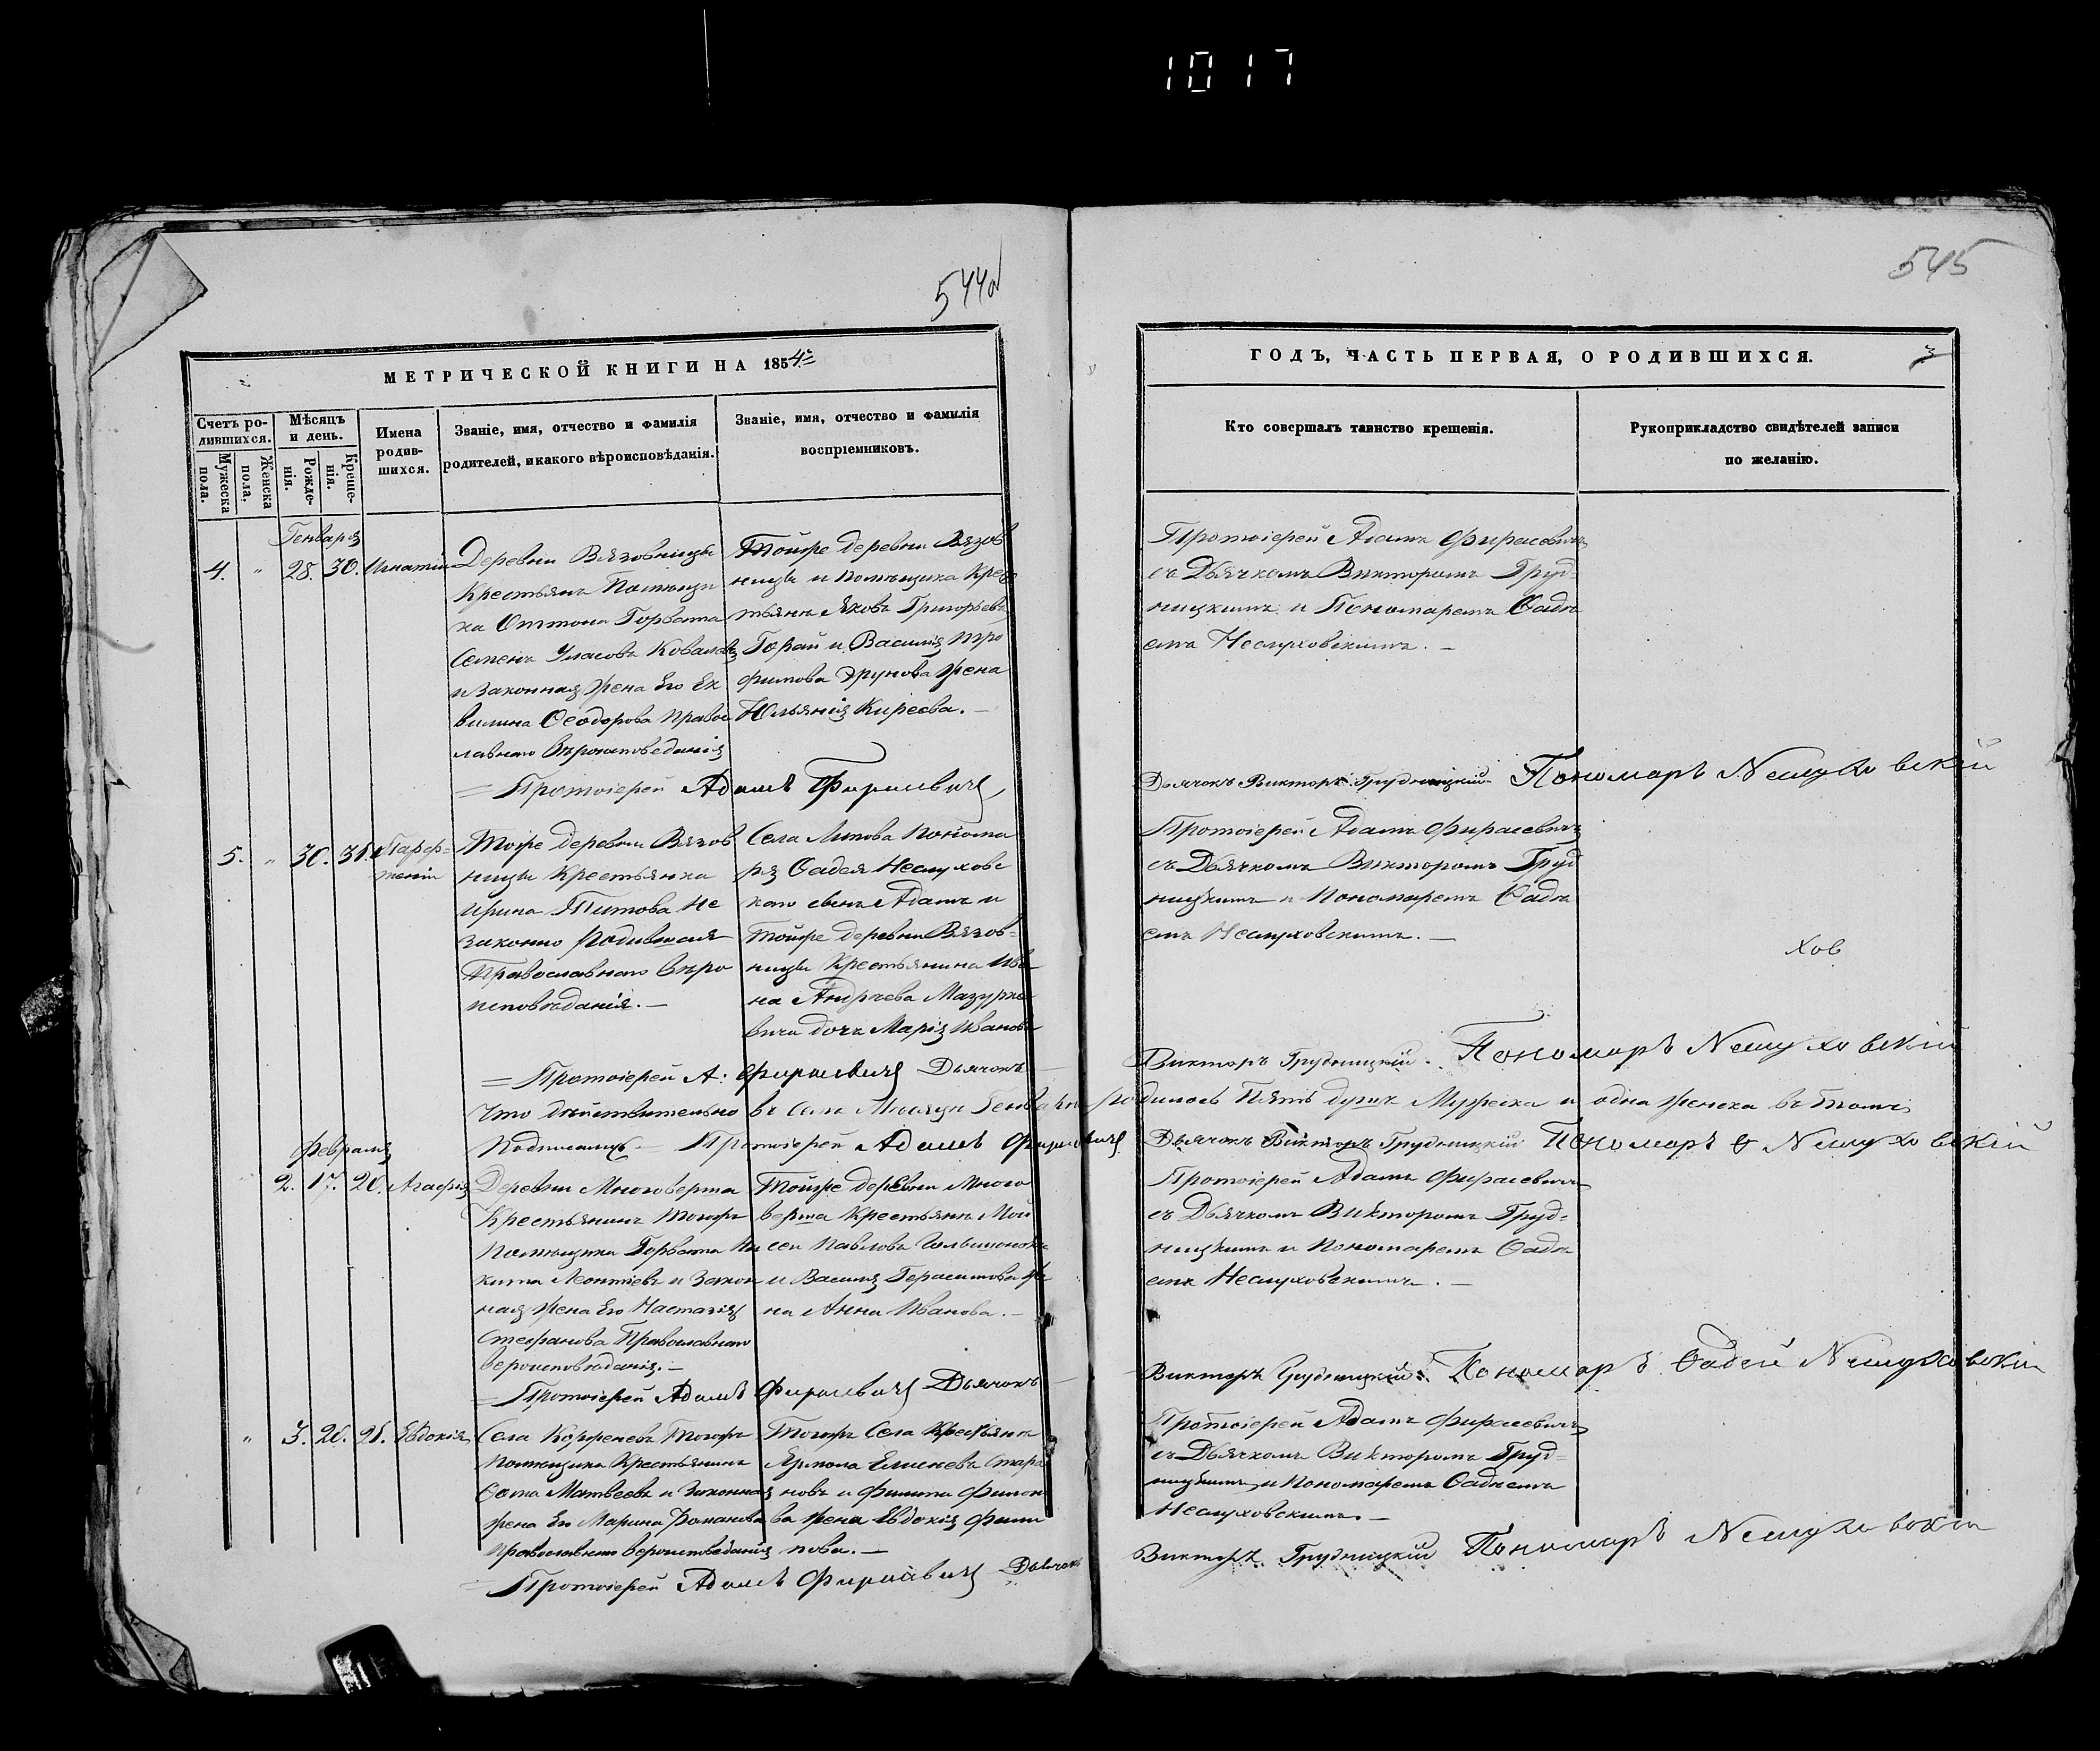 1017
544а
545
МЕТРИЧЕСКОЙ КНИГИ НА 1854
ГОДЪ, ЧАСТЬ ПЕРВАЯ, О РОДИВШИХСЯ.
3
Счетъ ро-
дившихся.
Мужеска
пола.
Женска
пола.
Мѣсяцъ
и день.
Рожде-
нія.
Креще-
нія.
Имена
родив-
шихся.
Званіе, имя, отчество и фамилія
родителей, и какого вѣроисповѣданія.
Званіе, имя, отчество и фамилія
воспріемниковъ.
Кто совершалъ таинство крещенія.
Рукоприкладство свидѣтелей записи
по желанію.
Генваря
4. " 28. 30. Игнатій
Деревни Вязовницы
Крестьянъ Помѣщи
ка Оттона Горвата
Семенъ Уласовъ
и Законная Жена Его Ек
вилина Ѳеодорова Правос
лавнаго Вѣроисповеданія
Тойже деревни Вязов
ницы и помѣщика Крес
тьянъ Яковъ Григорьевъ
Горай и Василія Тро
фимова Жена
Юльянія Киреева. —
= Протоіерей Адамъ Фирасевичъ
Протоіерей Адамъ Фирасевичъ
съ Дьячкомъ Викторомъ Груд-
ницкимъ и Пономаремъ Ѳадѣ
емъ Неслуховскимъ. —
Дьячокъ Викторъ Грудницкій Пономаръ Неслуховскій
5. " 30. 31. Парф-
теній
Тойже деревни Вязов
ницы Крестьянка
Ирина Титова Не
законно Родившися
Православнаго Вѣро
исповѣданія. —
Села Литова Понома
ря Ѳадея Неслуховс
каго сынъ Адамъ и
тойже деревни Вязов-
ницы Крестьянина Ива
на Андрѣева Мазурке
вича дочь Марія Иванова
= Протоіерей А. Фирасевичъ Дьячокъ
Протоіерей Адамъ Фирасевичъ
съ Дьячкомъ Викторомъ Груд
ницкимъ и Пономаремъ Ѳадѣ
емъ Неслуховскимъ. —
хов
Викторъ Грудницкій. Пономаръ Неслуховскій
Что дѣйствительно въ семъ Месяцѣ Генварѣ родилось Пять душъ Мужеска и одна Женска въ томъ
Подписались — Протоіерей Адамъ Фирасевичъ Дьячокъ Викторъ Грудницкій Пономаръ Ѳ Неслуховскій
Февраля
2. 17. 20. Агафія
Деревни Многоверша
Крестьянинъ Тогожъ
Помѣщика Горвата Ни
кита Леонтіевъ и Закон
ная Жена Его Настазія
Стефанова Православнаго
вероисповѣданія. —
Тойже деревни Много
верша Крестьянъ Мои
сей Павловъ
и Василія Герасимова Же
на Анна Иванова. —
= Протоіерей Адамъ Фирасевичъ Дьячокъ
Протоіерей Адамъ Фирасевичъ
съ Дьячкомъ Викторомъ Груд-
ницкимъ и Пономаремъ Ѳадѣ
емъ Неслуховскимъ. —
Викторъ Грудницкій. Пономаръ Ѳадей Неслуховскій
" 3. 20. 21. Евдокія
Села Тогожъ
Помѣщика Крестьянинъ
Ѳома Матвеевъ и Законная
Жена Его Марина Романова
Православнаго вероисповеданія
Тогожъ Села Крестьянъ
Ярмола Елисеевъ
новъ и Филипа Филон
ва Жена Евдокія Фили
пова. —
= Протоіерей Адамъ Фирасевичъ Дьячокъ
Протоіерей Адамъ Фирасевичъ
съ Дьячкомъ Викторомъ Груд-
ницкимъ и Пономаремъ Ѳадѣемъ
Неслуховскимъ. —
Викторъ Грудницкій Пономаръ Неслуховскій